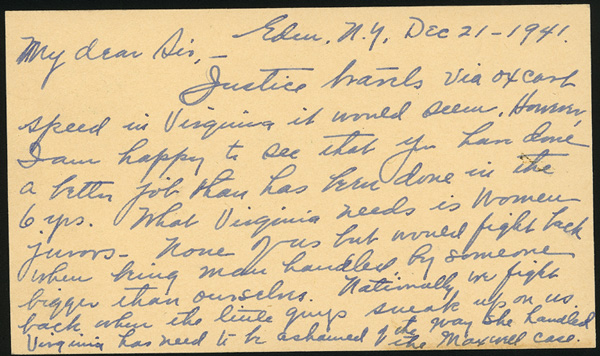 Eden, N.Y. Dec 21-1941.
My dear Sir,-
Justice travels via oxcart
speed in Virginia it would seem. However,
I am happy to see that you have done
a better job than has been done in the
6 yrs. What Virginia needs is Women
jurors - None of us but would fight back
when being man handled by someone
bigger than ourselves. Nationally, we fight
back when the little guys sneak up on us.
Virginia has need to be ashamed of the way she handled
the Maxwell case.